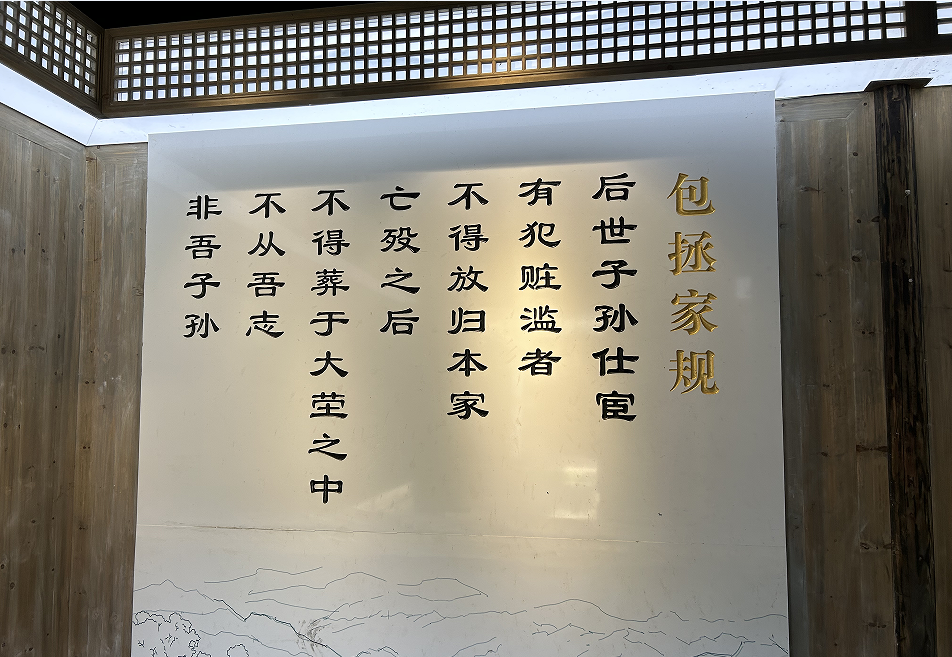 包拯家规
后世子孙仕宦
有犯赃滥者
不得放归本家
亡殁之后
不得葬于大茔之中
不从吾志
非吾子孙